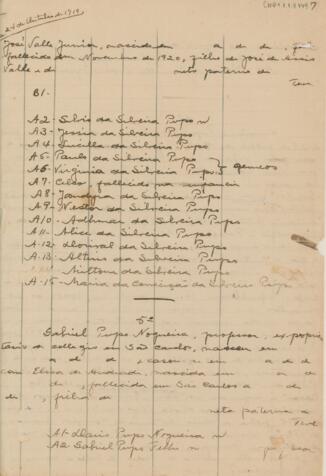 24 de Outubro de 1919
7
José Valle Junior, nascido em a de de
fallecido em Novembro de 1920, filho de José de Assis
Valle e de neto paterno de
Teve
B1-
A2- Silvio da Silveira Pupo n
A3- Jessia da Silveira Pupo
A4- Lucilla da Silveira Pupo
A5- Paulo da Silveira Pupo
A6- Virginia da Silveira Pupo } gemeos
A7- Celso fallecido na infancia
A8- Jandyra da Silveira Pupo
A9- Nestor da Silveira Pupo
A10- Adhemar da Silveira Pupo
A11- Alice da Silveira Pupo
A-12- Dorival da Silveira Pupo
A-13- Altino da Silveira Pupo
Milton da Silveira Pupo
A-15- Maria da Conceição da Silveira Pupo
5º
Gabriel Pupo Nogueira, professor, ex-proprie
tario de collegio em São Carlos, nasceu em
a de de , casou-se em a de de
com Elisa de Andrade, nascida em a
de , fallecida em São Carlos a de
de , filha de
neta paterna de
Teve
A1- Dario Pupo Nogueira n
A2 Gabriel Pupo Filho n